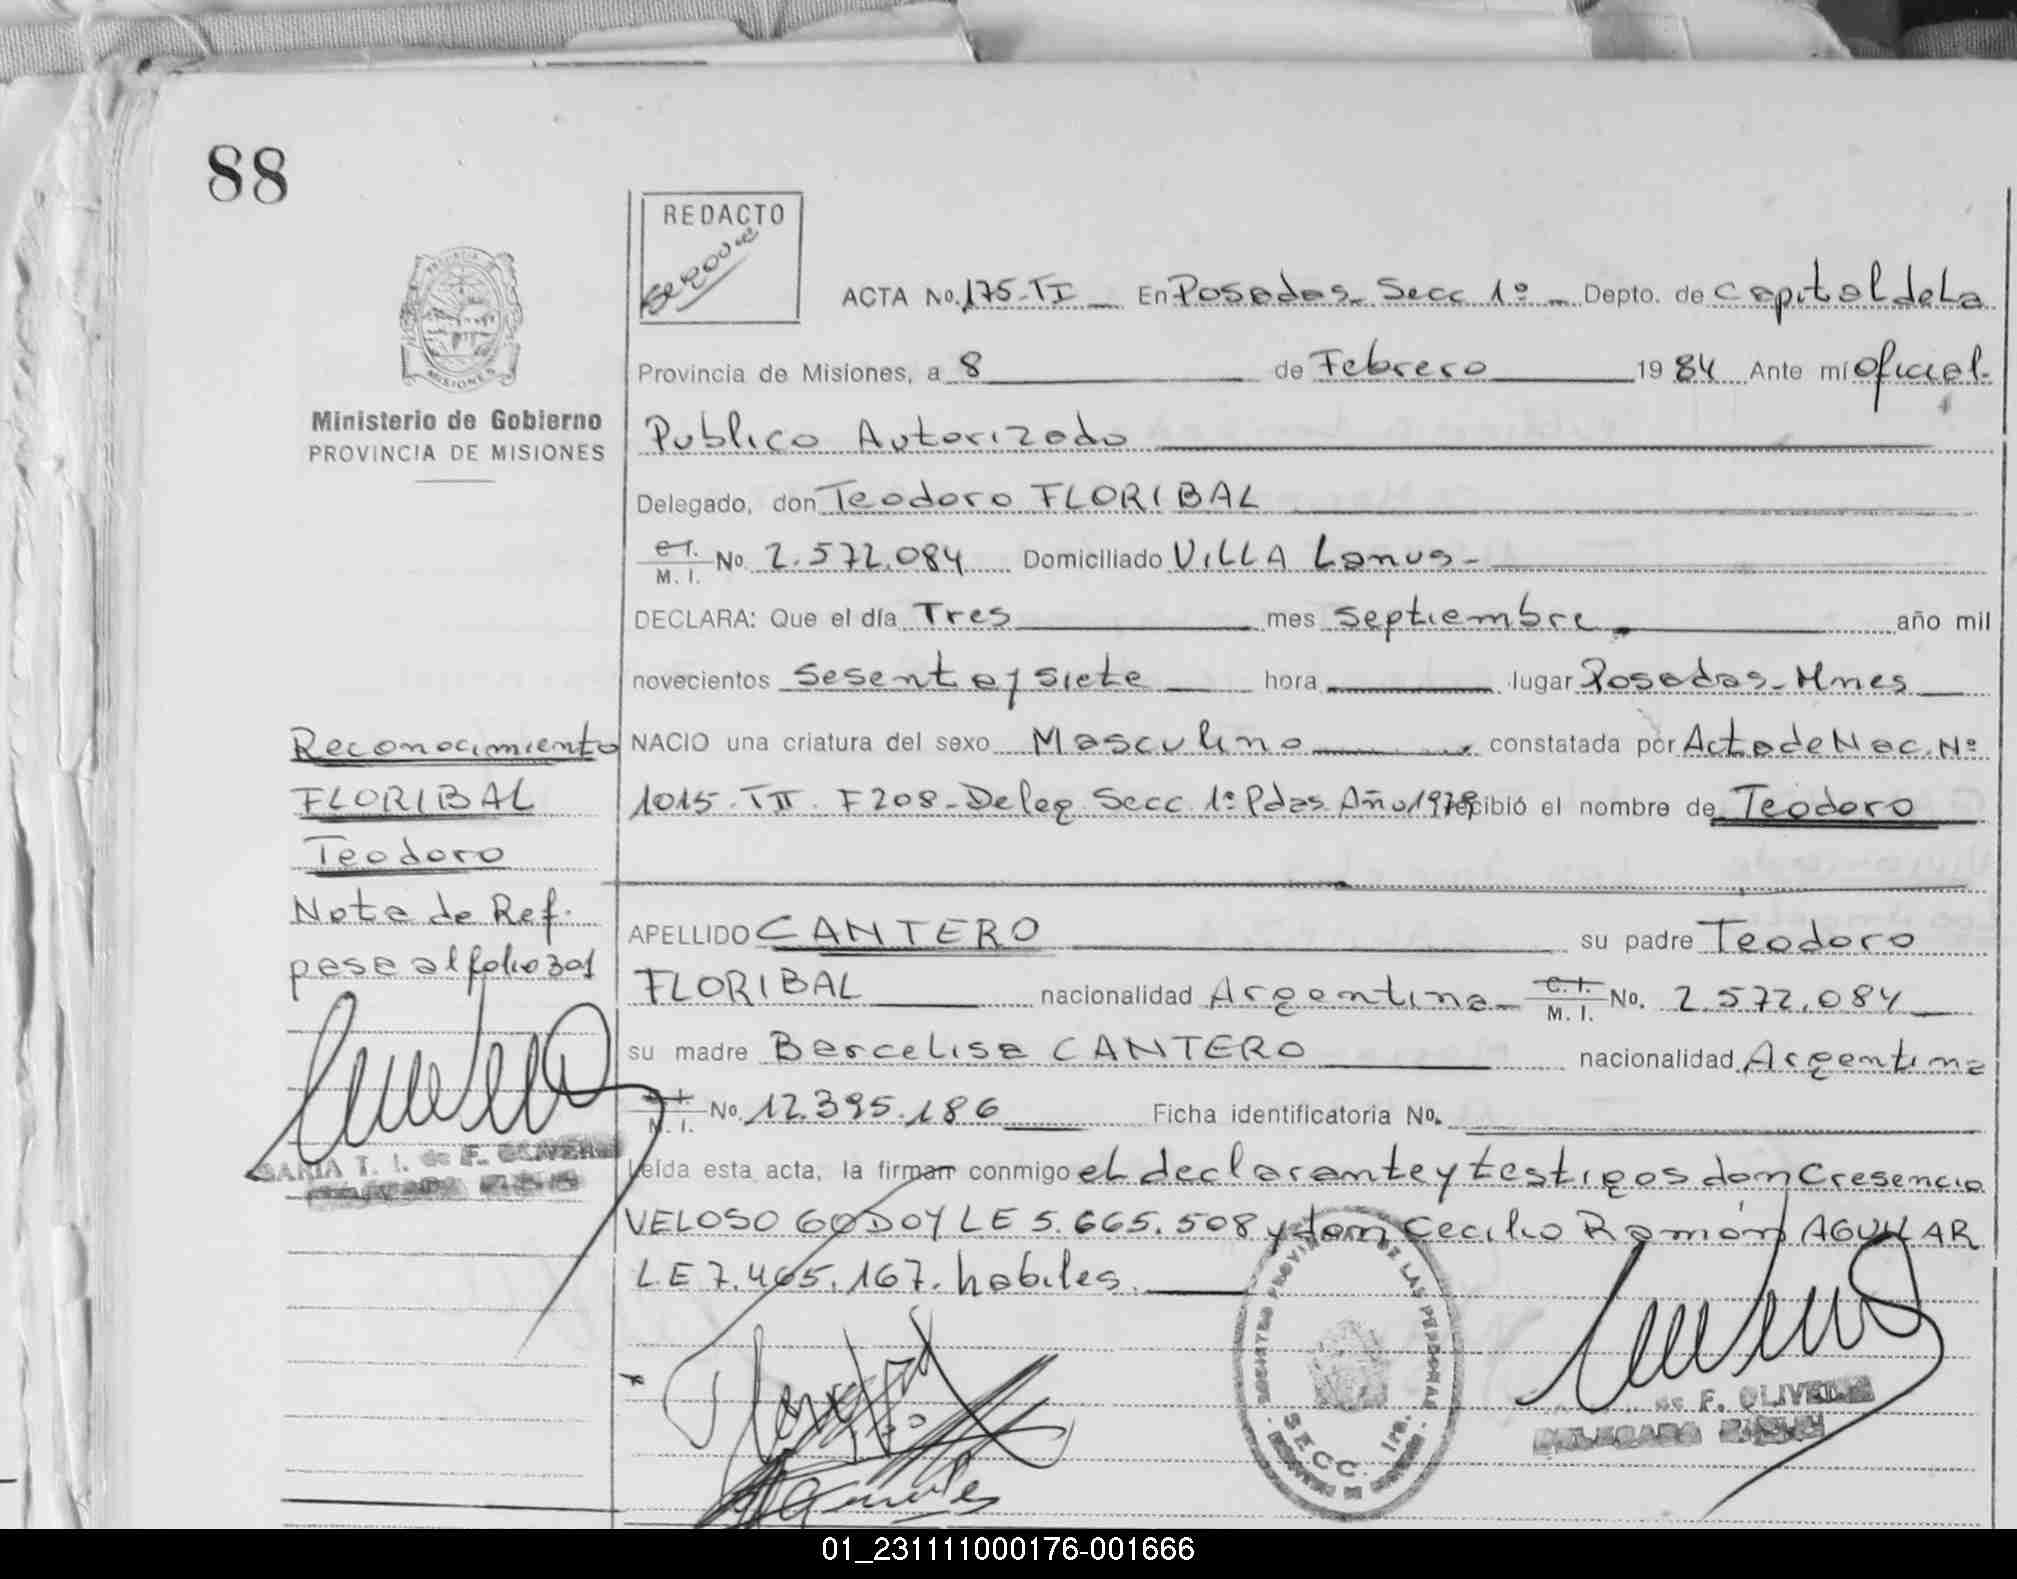 88
REDACTO
PROVINCIA
MISIONES
Ministerio de Gobierno
PROVINCIA DE MISIONES
ACTA No. 175-TI En Posadas- Secc 1º Depto. de Capital de La
Provincia de Misiones, a 8 de Febrero 1984 Ante mí Oficial.
Publico Autorizado
Delegado, don Teodoro FLORIBAL
C.I. M. I. No. 2.572.084 Domiciliado VILLA Lanus-
DECLARA: Que el día Tres mes septiembre año mil
novecientos sesenta y siete hora lugar Posadas-Mnes
NACIO una criatura del sexo Masculino constatada por Acta de Nac. Nº
1015-TII. F208-Deleg Secc. 1º Pdas Año recibió el nombre de Teodoro
APELLIDO CANTERO su padre Teodoro
FLORIBAL nacionalidad Argentina- C.I. M. I. No. 2.572.084
su madre Bercelisa CANTERO nacionalidad Argentina
M. I. No. 12.395.186 Ficha identificatoria No.
Leída esta acta, la firman conmigo el declarante y testigos don Cresencio
VELOSO GODOY LE 5.665.508 y don Cecilio Ramón AGUILAR
L.E 7.465.167. habiles.
Reconocimiento
FLORIBAL
Teodoro
Nota de Ref.
pase al folio 301
T. I. de F. OLIVERA
DELEGADA
SECC. 1ra.
de F. OLIVERA
DELEGADA
01_231111000176-001666